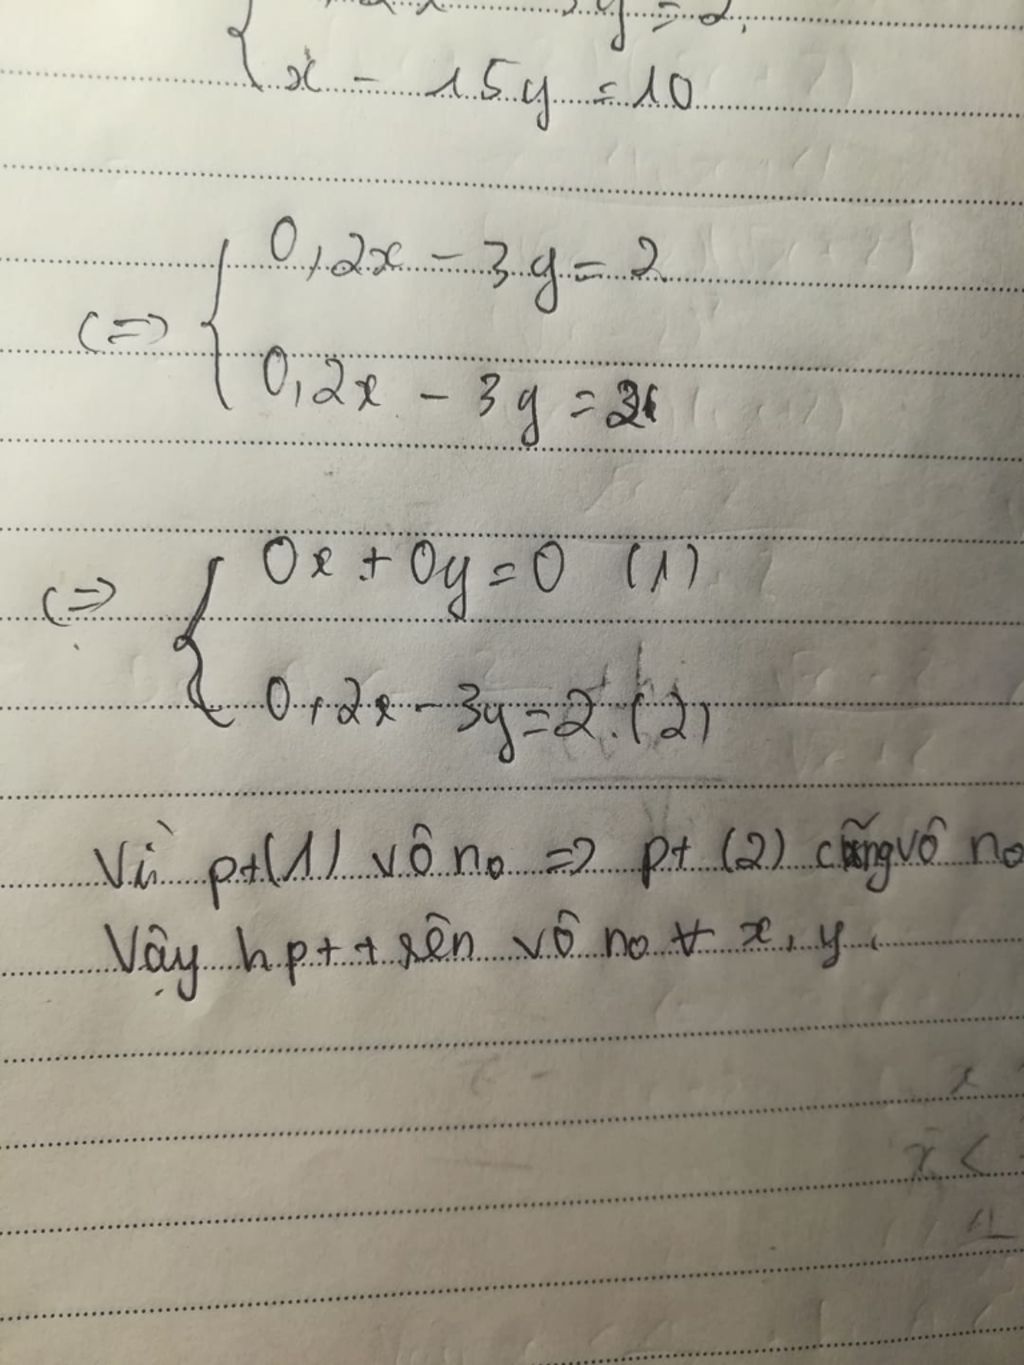 y = 2.
x - 15y = 10
0,2x - 3y = 2
(=>
0,2x - 3y = 2
0x + 0y = 0 (1)
(=>
0,2x - 3y = 2. (2)
Vì pt (1) vô no => pt (2) cũng vô no
Vậy hpt trên vô no ∀ x, y.
x <